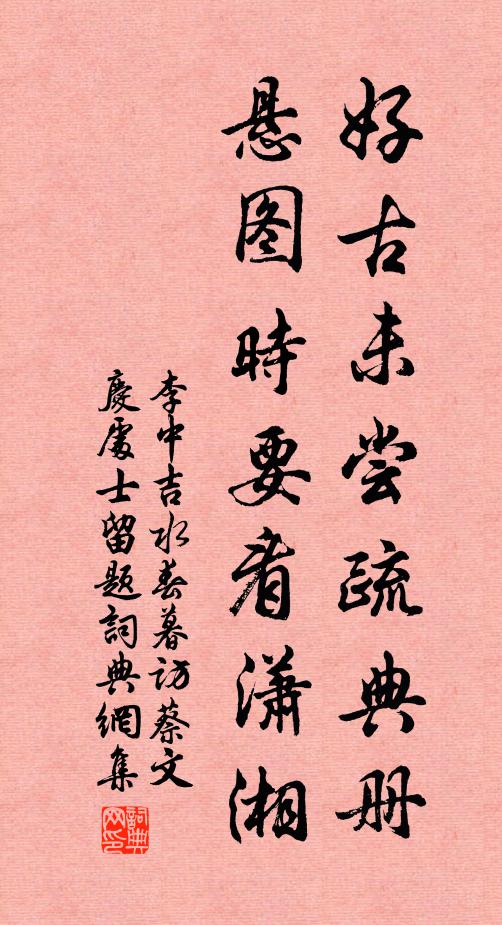 好古未尝疏典册
悬图時要看潇湘
李中吉水春暮访蔡文
慶處士留题詞典網集
詞典网印